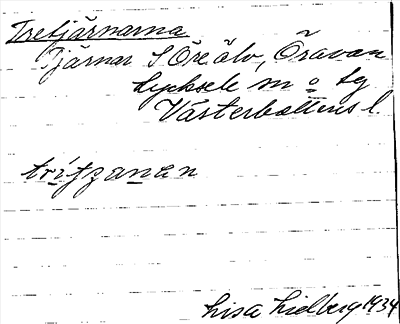 Tretjärnarna
Tjärnar S Öreälv, Öravan
Lycksele m o lg
Västerbottens l.
tritjanan
Lisa Lidberg 1934